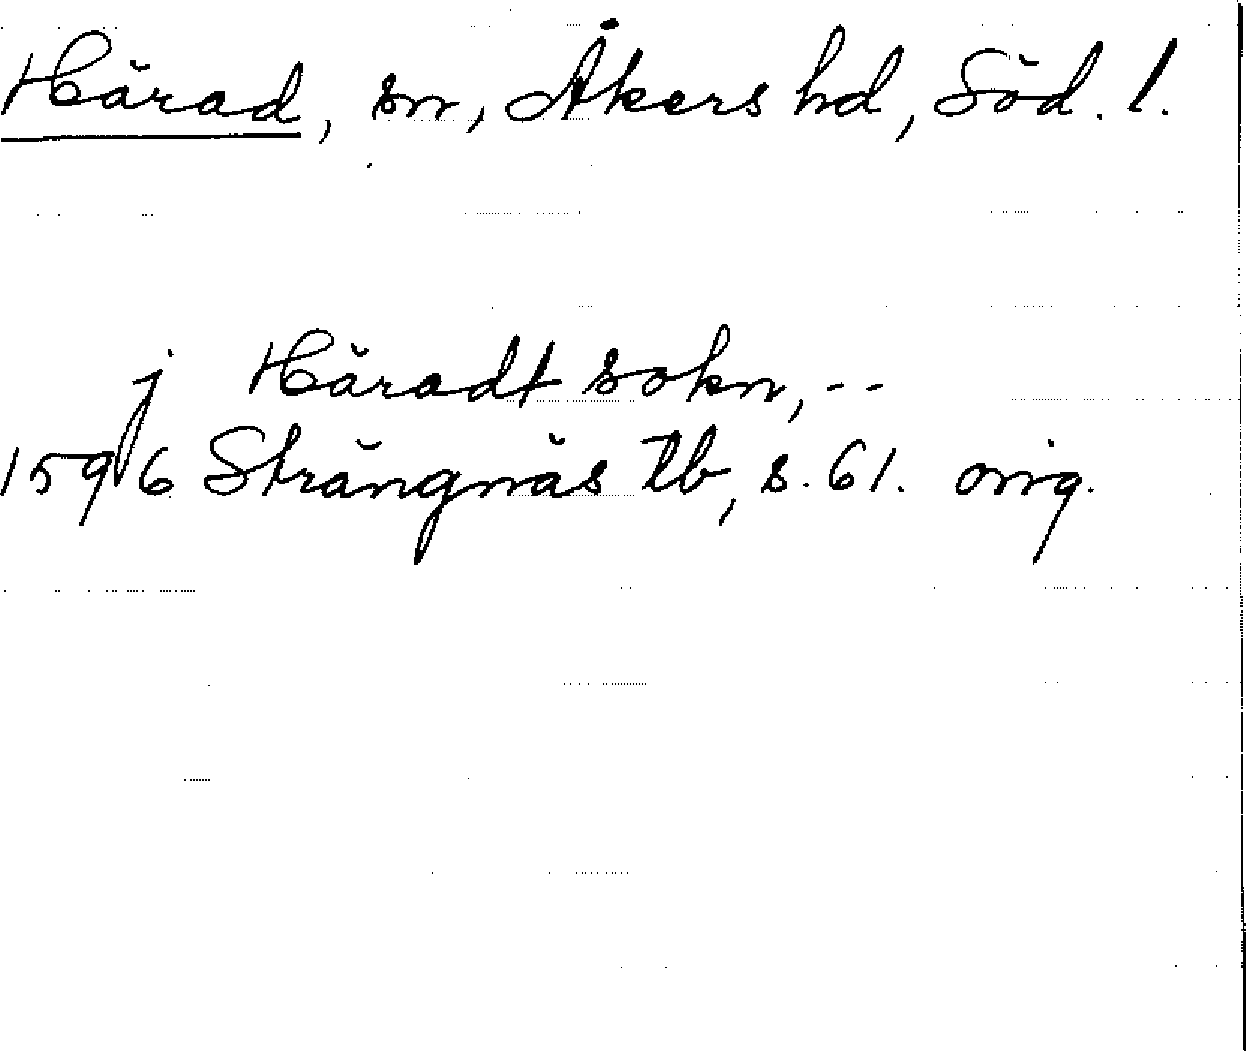 Härad, sn, Åkers hd, Söd. l.
j Häradt sokn, --
1596 Strängnäs tb, s. 61. orig.